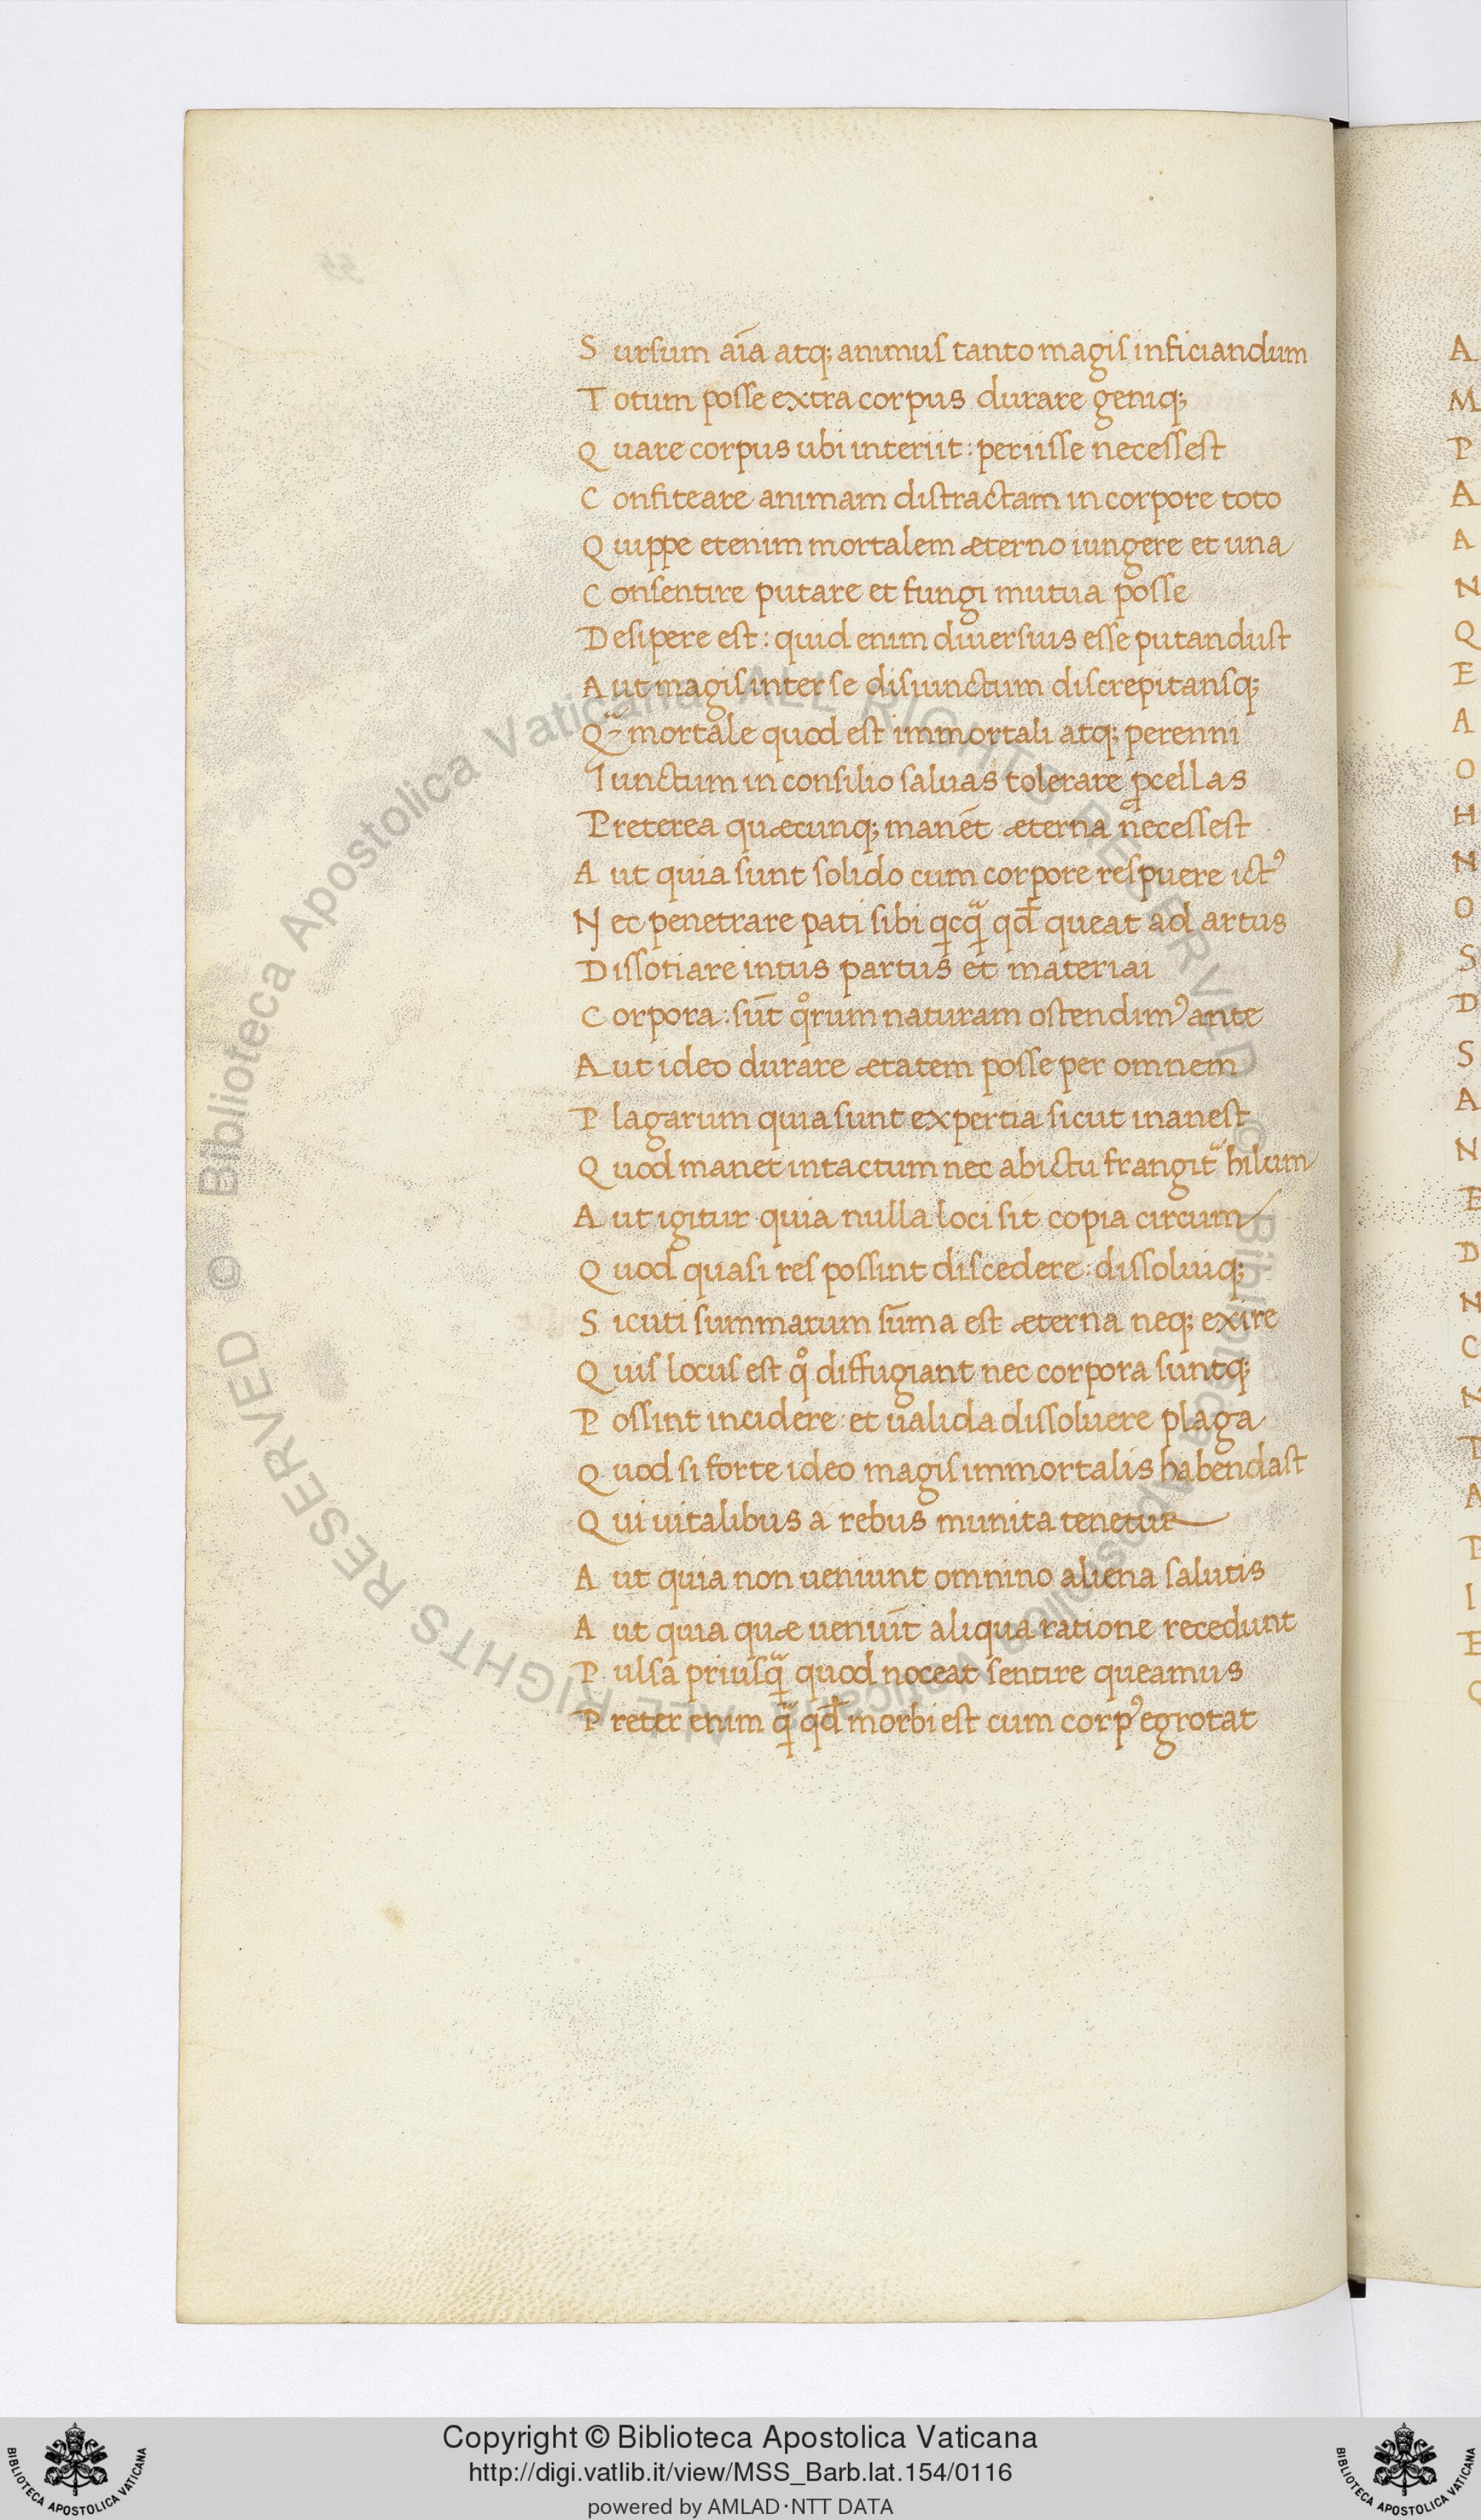 Sursum aīa atq; animus tanto magis inficiandum
Totum posse extra corpus durare geniq;
Quare corpus ubi interiit: periisse necessest
Confiteare animam distractam in corpore toto
Quippe etenim mortalem æterno iungere et una
Consentire putare et fungi mutua posse
Desipere est: quid enim diuersius esse putandust
Aut magis inter se disiunctum discrepitansq;
Q̃ mortale quod est immortali atq; perenni
Iunctum in consilio saluas tolerare ꝓcellas
Preterea quæcunq; manēt æterna necessest
Aut quia sunt solido cum corpore respuere ictꝰ
Nec penetrare pati sibi qicq̃ qd̄ queat ad artus
Dissotiare intus partus et materiai
Corpora: sūt qͦrum naturam ostendimꝰ ante
Aut ideo durare ætatem posse per omnem
Plagarum quia sunt expertia sicut inanest
Quod manet intactum nec ab ictu frangit᷑ hilum
Aut igitur quia nulla loci sit copia circum
Quod quasi res possint discedere: dissoluiq;
Sicuti summarum sūma est æterna neq; exire
Quis locus est qͦ diffugiant nec corpora suntq;
Possint incidere: et ualida dissoluere plaga
Quod si forte ideo magis immortalis habendast
Qui uitalibus a rebus munita tenetur
Aut quia non ueniunt omnino aliena salutis
Aut quia quæ ueniūt aliqua ratione recedunt
Pulsa priusq̃ quod noceat sentire queamus
Preter enim q̃ qd̄ morbi est cum corpꝰ egrotat
A
M
P
A
A
N
Q
E
A
O
H
N
O
S
D
S
A
N
E
D
N
C
N
T
A
P
I
E
© Biblioteca Apostolica Vaticana ALL RIGHTS RESERVED © Biblioteca Apostolica Vaticana ALL RIGHTS RESERVED
Copyright © Biblioteca Apostolica Vaticana
http://digi.vatlib.it/view/MSS_Barb.lat.154/0116
powered by AMLAD·NTT DATA
BIBLIOTECA APOSTOLICA VATICANA
BIBLIOTECA APOSTOLICA VATICANA